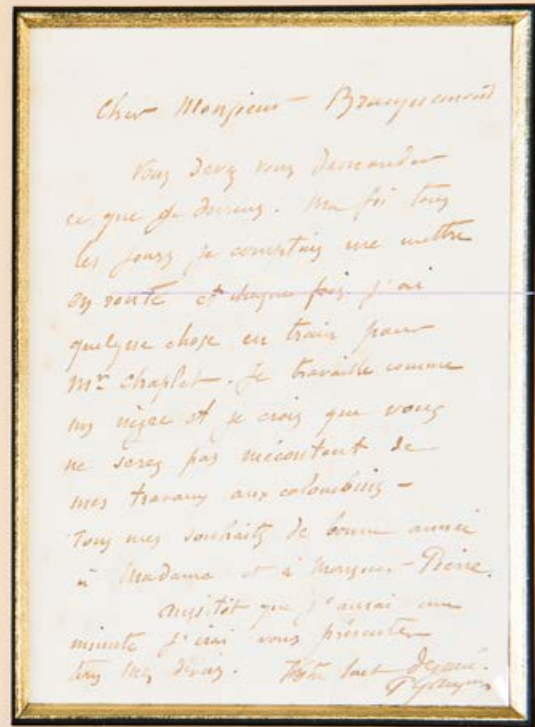 Cher Monsieur Bracquemond
Vous devez vous demander
ce que je deviens. Ma foi tous
les jours je comptais me mettre
en route et chaque fois j'ai
quelque chose en train pour
Mr Chaplet. Je travaille comme
un nègre et je crois que vous
ne serez pas mécontent de
mes travaux aux colombins -
Tous mes souhaits de bonne année
à Madame et à Monsieur - Pierre.
Aussitôt que j'aurai une
minute j'irai vous présenter
tous mes devoirs. Votre tout dévoué.
P Gauguin